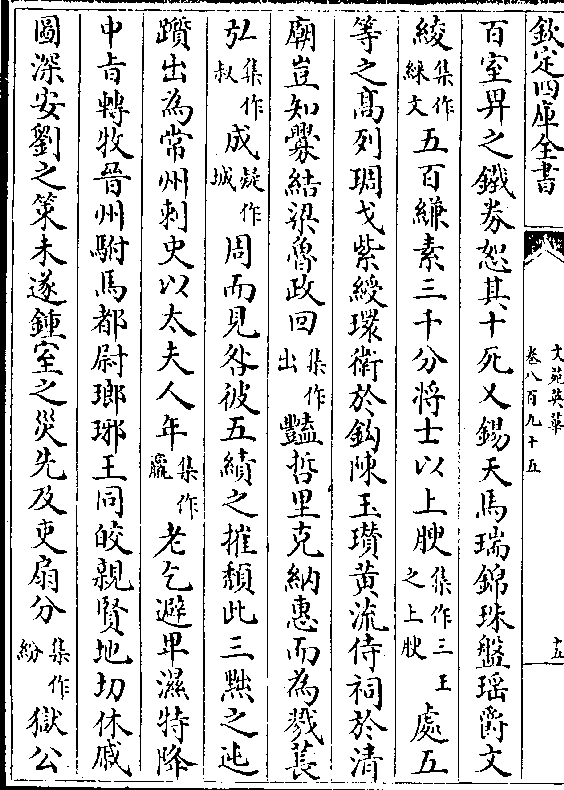 欽定四庫全書
文苑英華
卷八百九十五
十五
百室畀之鐵券恕其十死又錫天馬瑞錦珠盤瑶爵文
綾集作綵文五百縑素三千分將士以上腴集作三王之上腴處五
等之髙列琱戈紫綬環衛於鈎陳玉瓚黄流侍祠於清
廟豈知釁結梁魯政回集作出豔哲里克納惠而為戮萇
弘集作叔成疑作城周而見咎彼五績之摧頽此三黜之迍
躓出為常州刺史以太夫人年集作羸老乞避卑濕特降
中㫖轉牧晉州駙馬都尉瑯琊王同皎親賢地切休戚
圖深安劉之策未遂鍾室之災先及吏扇分集作紛獄公